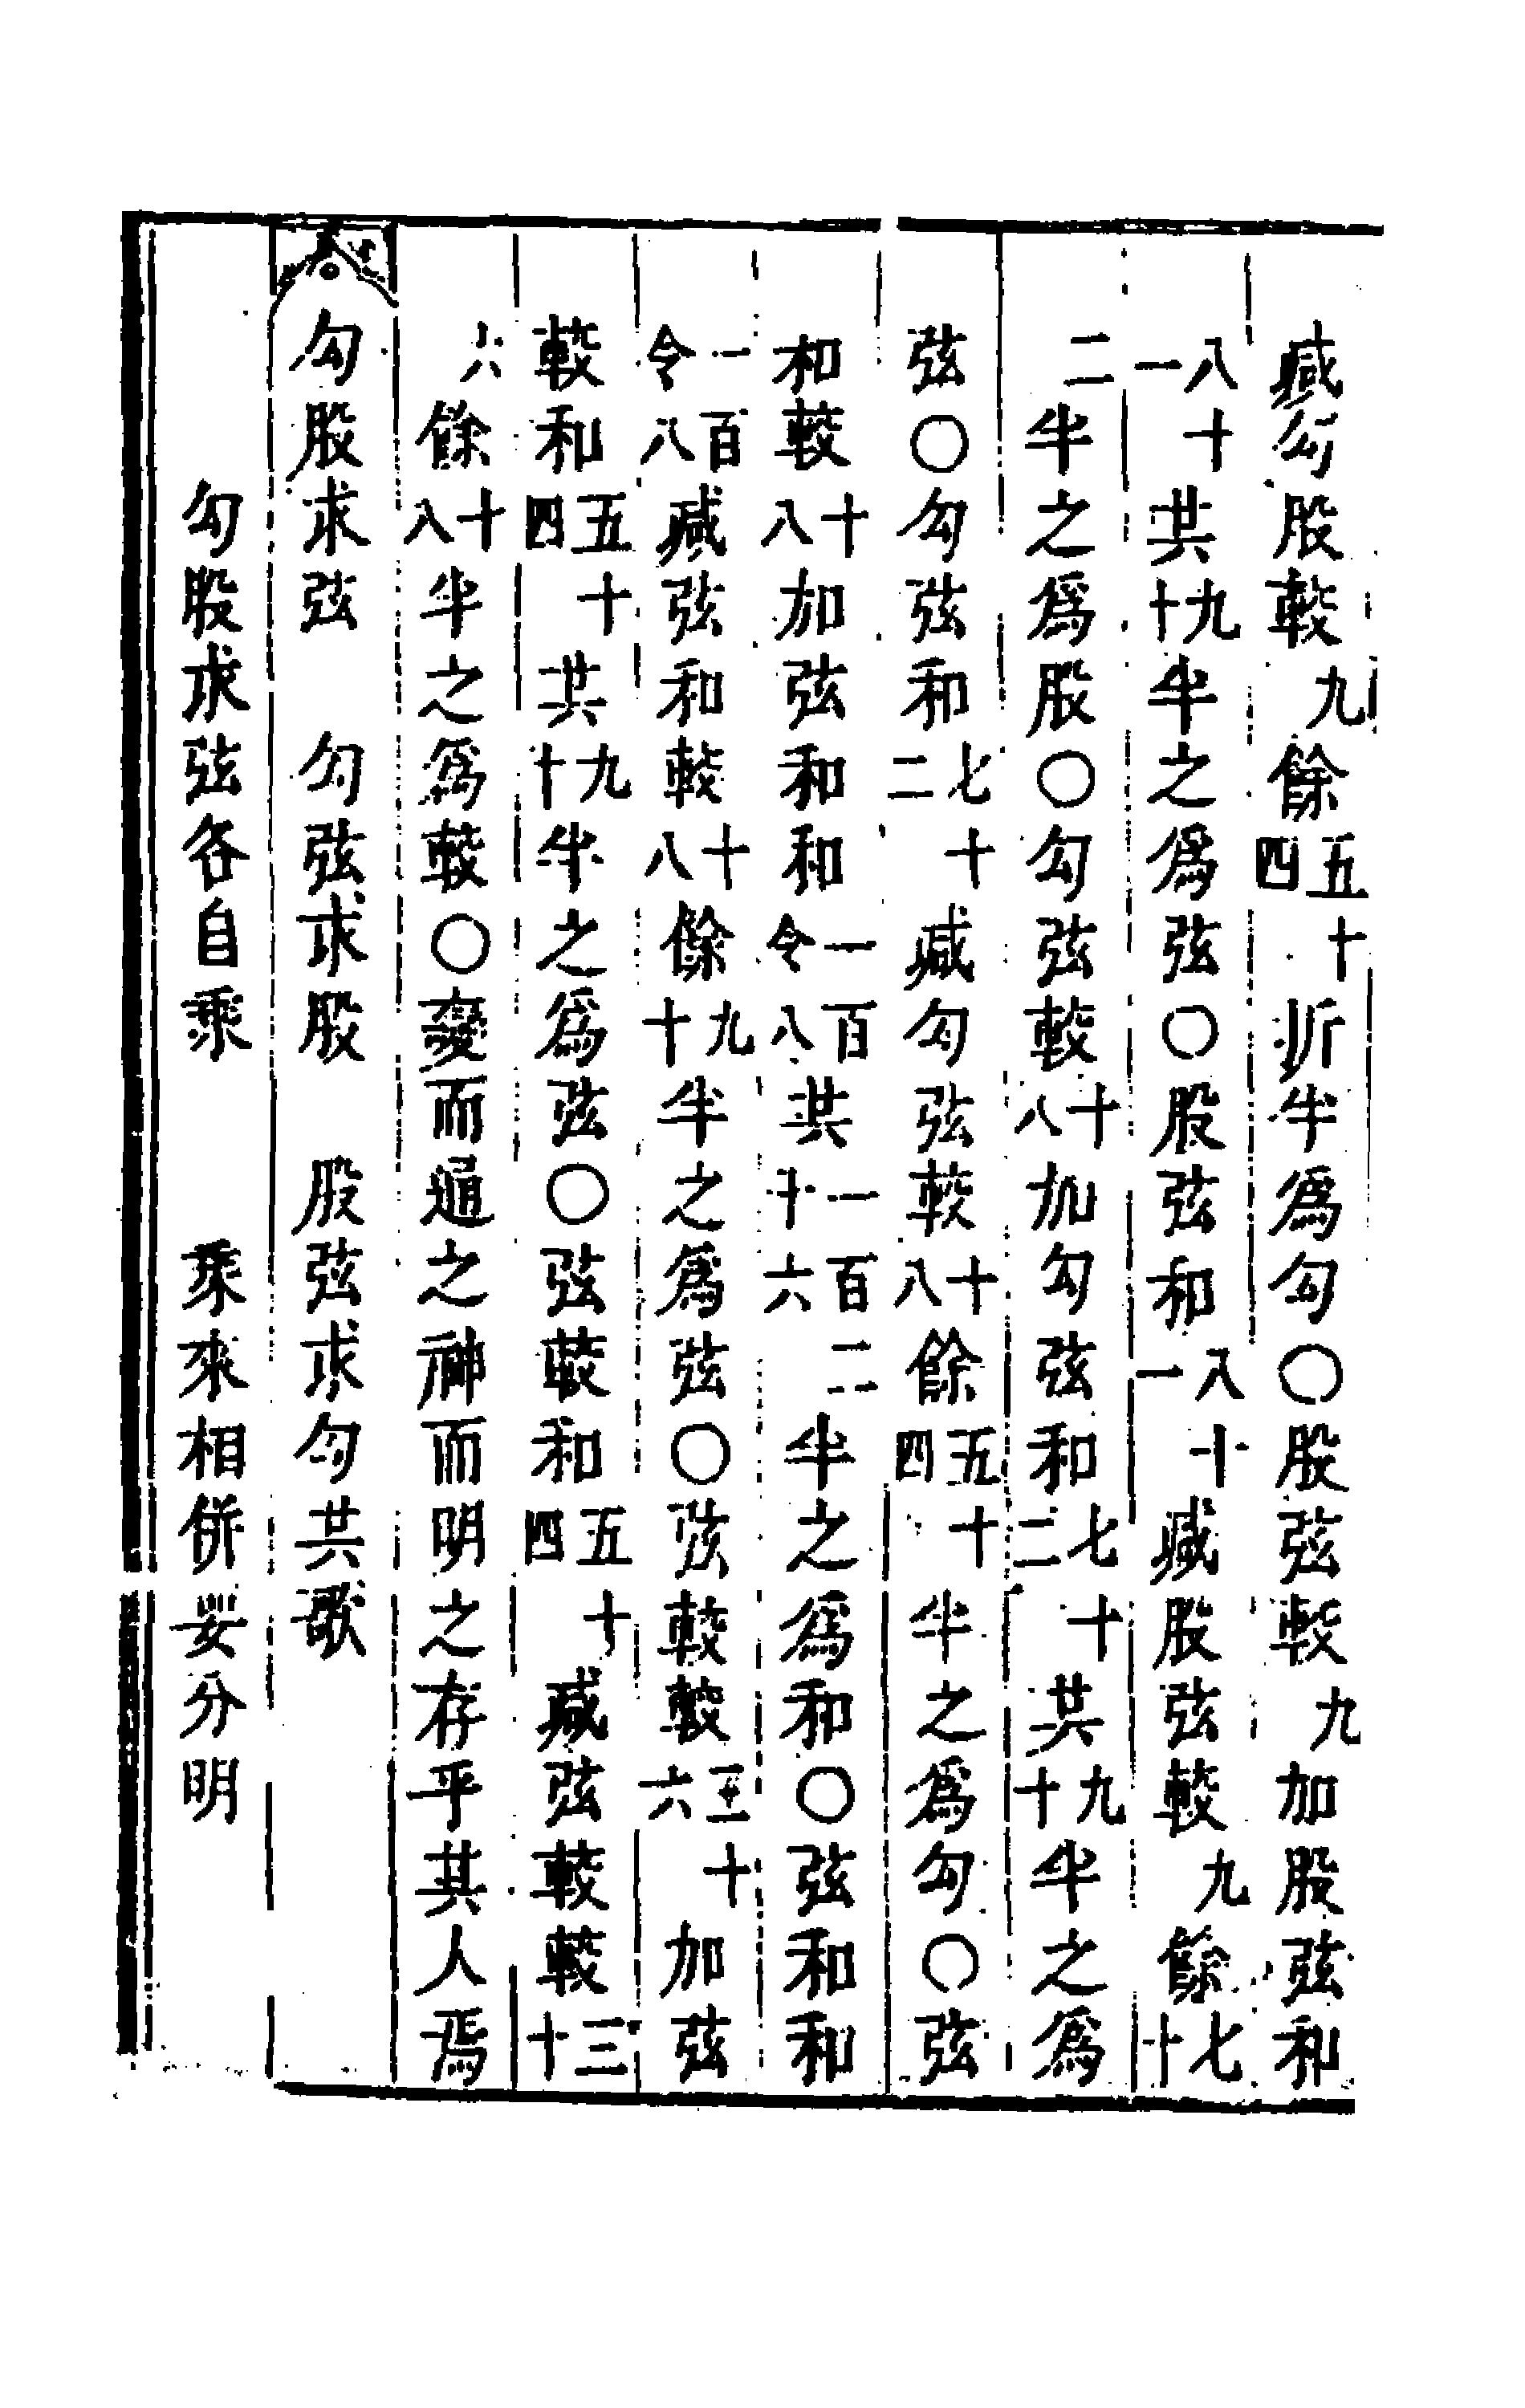 臧勾股較九餘五十四折半爲勾〇股弦較九加股弦和
八十一共九十半之爲弦〇股弦和八十一臧股弦較九餘七十
二半之爲股〇勾弦較十八加勾弦和七十二共九十半之爲
弦〇勾弦和七十二臧勾弦較十八餘五十四半之爲勾〇弦
和較十八加弦和和一百令八共一百二十六半之爲和〇弦和和
一百令八臧弦和較十八餘九十半之爲弦〇弦較較三十六加弦
較和五十四共九十半之爲弦〇弦較和五十四臧弦較較三十
六餘十八半之爲較〇變而通之神而明之存乎其人焉
勾股求弦　勾弦求股　股弦求勾共歌
勾股求弦各自乘　乘來相併要分明